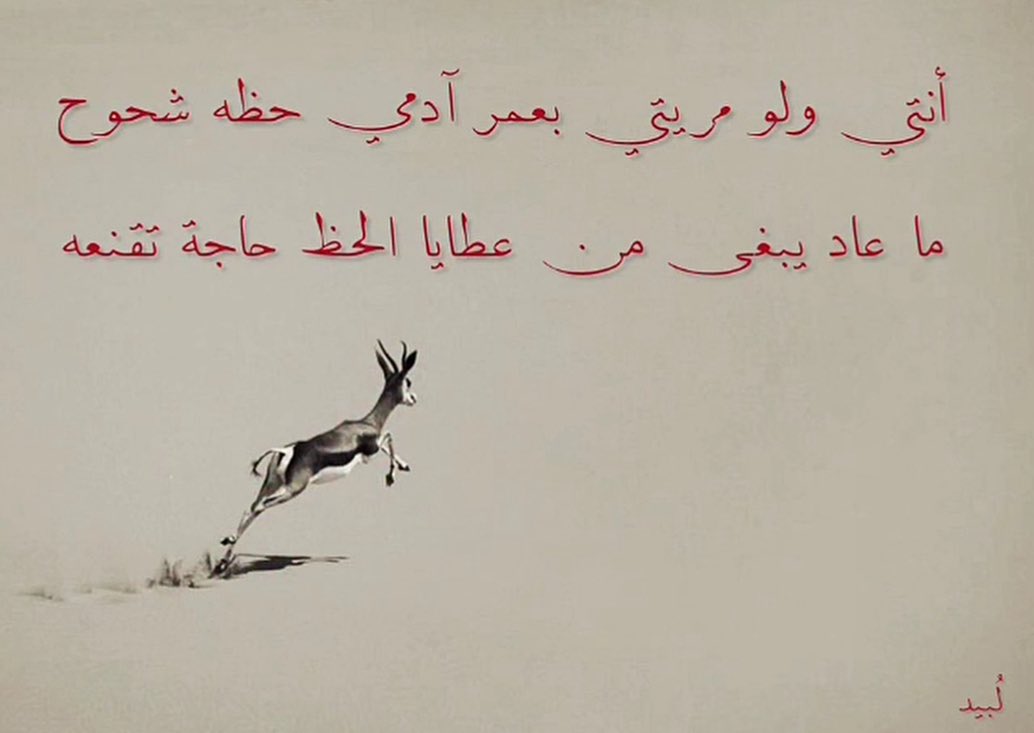 أنتي ولو مريتي بعمر آدمي حظه شحوح
ما عاد يبغى من عطايا الحظ حاجة تقنعه
لُبيد